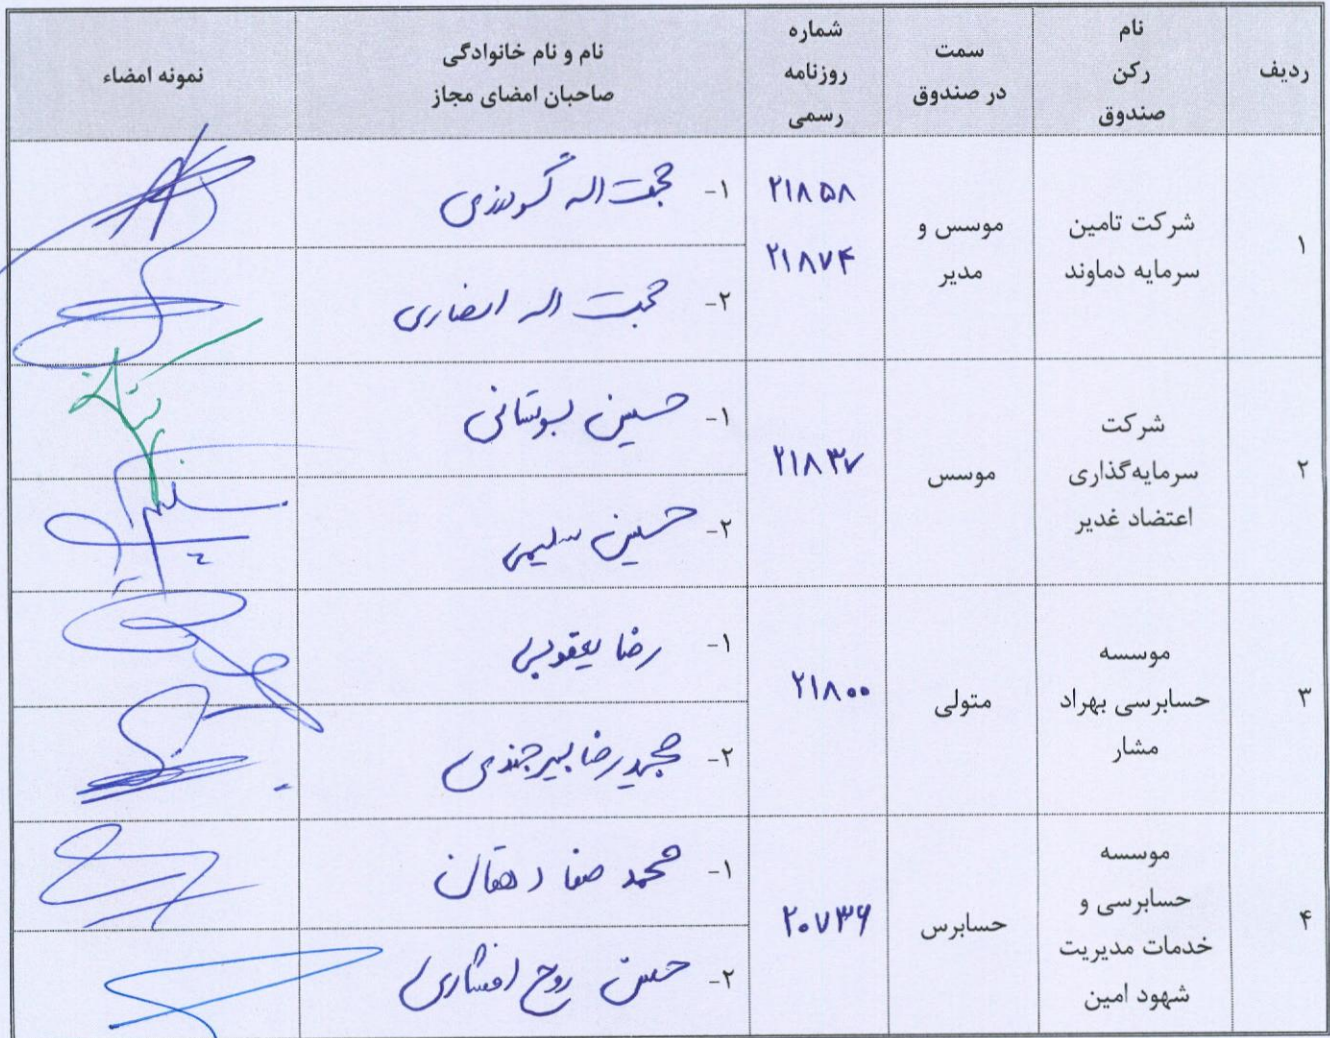 ردیف
نام
رکن
صندوق
سمت
در صندوق
شماره
روزنامه
رسمی
نام و نام خانوادگی
صاحبان امضای مجاز
نمونه امضاء
۱
شرکت تامین
سرمایه دماوند
موسس و
مدیر
۲۱۸۵۸
۲۱۸۷۴
۱- حجت اله گودرزی
۲- حجت اله انصاری
۲
شرکت
سرمایه‌گذاری
اعتضاد غدیر
موسس
۲۱۸۳۷
۱- حسین بوستانی
۲- حسین سلیمی
۳
موسسه
حسابرسی بهراد
مشار
متولی
۲۱۸۰۰
۱- رضا یعقوبی
۲- مجیدرضا بیرجندی
۴
موسسه
حسابرسی و
خدمات مدیریت
شهود امین
حسابرس
۲۰۷۳۶
۱- محمد صفا دهقان
۲- حسن روح افشاری